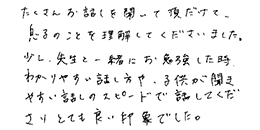 たくさんお話しを聞いて頂だけて、
息子のことを理解してくださいました。
少し、先生と一緒にお勉強した時、
わかりやすい話し方や、子供が聞き
やすい話しのスピードで話してくだ
さりとても良い印象でした。